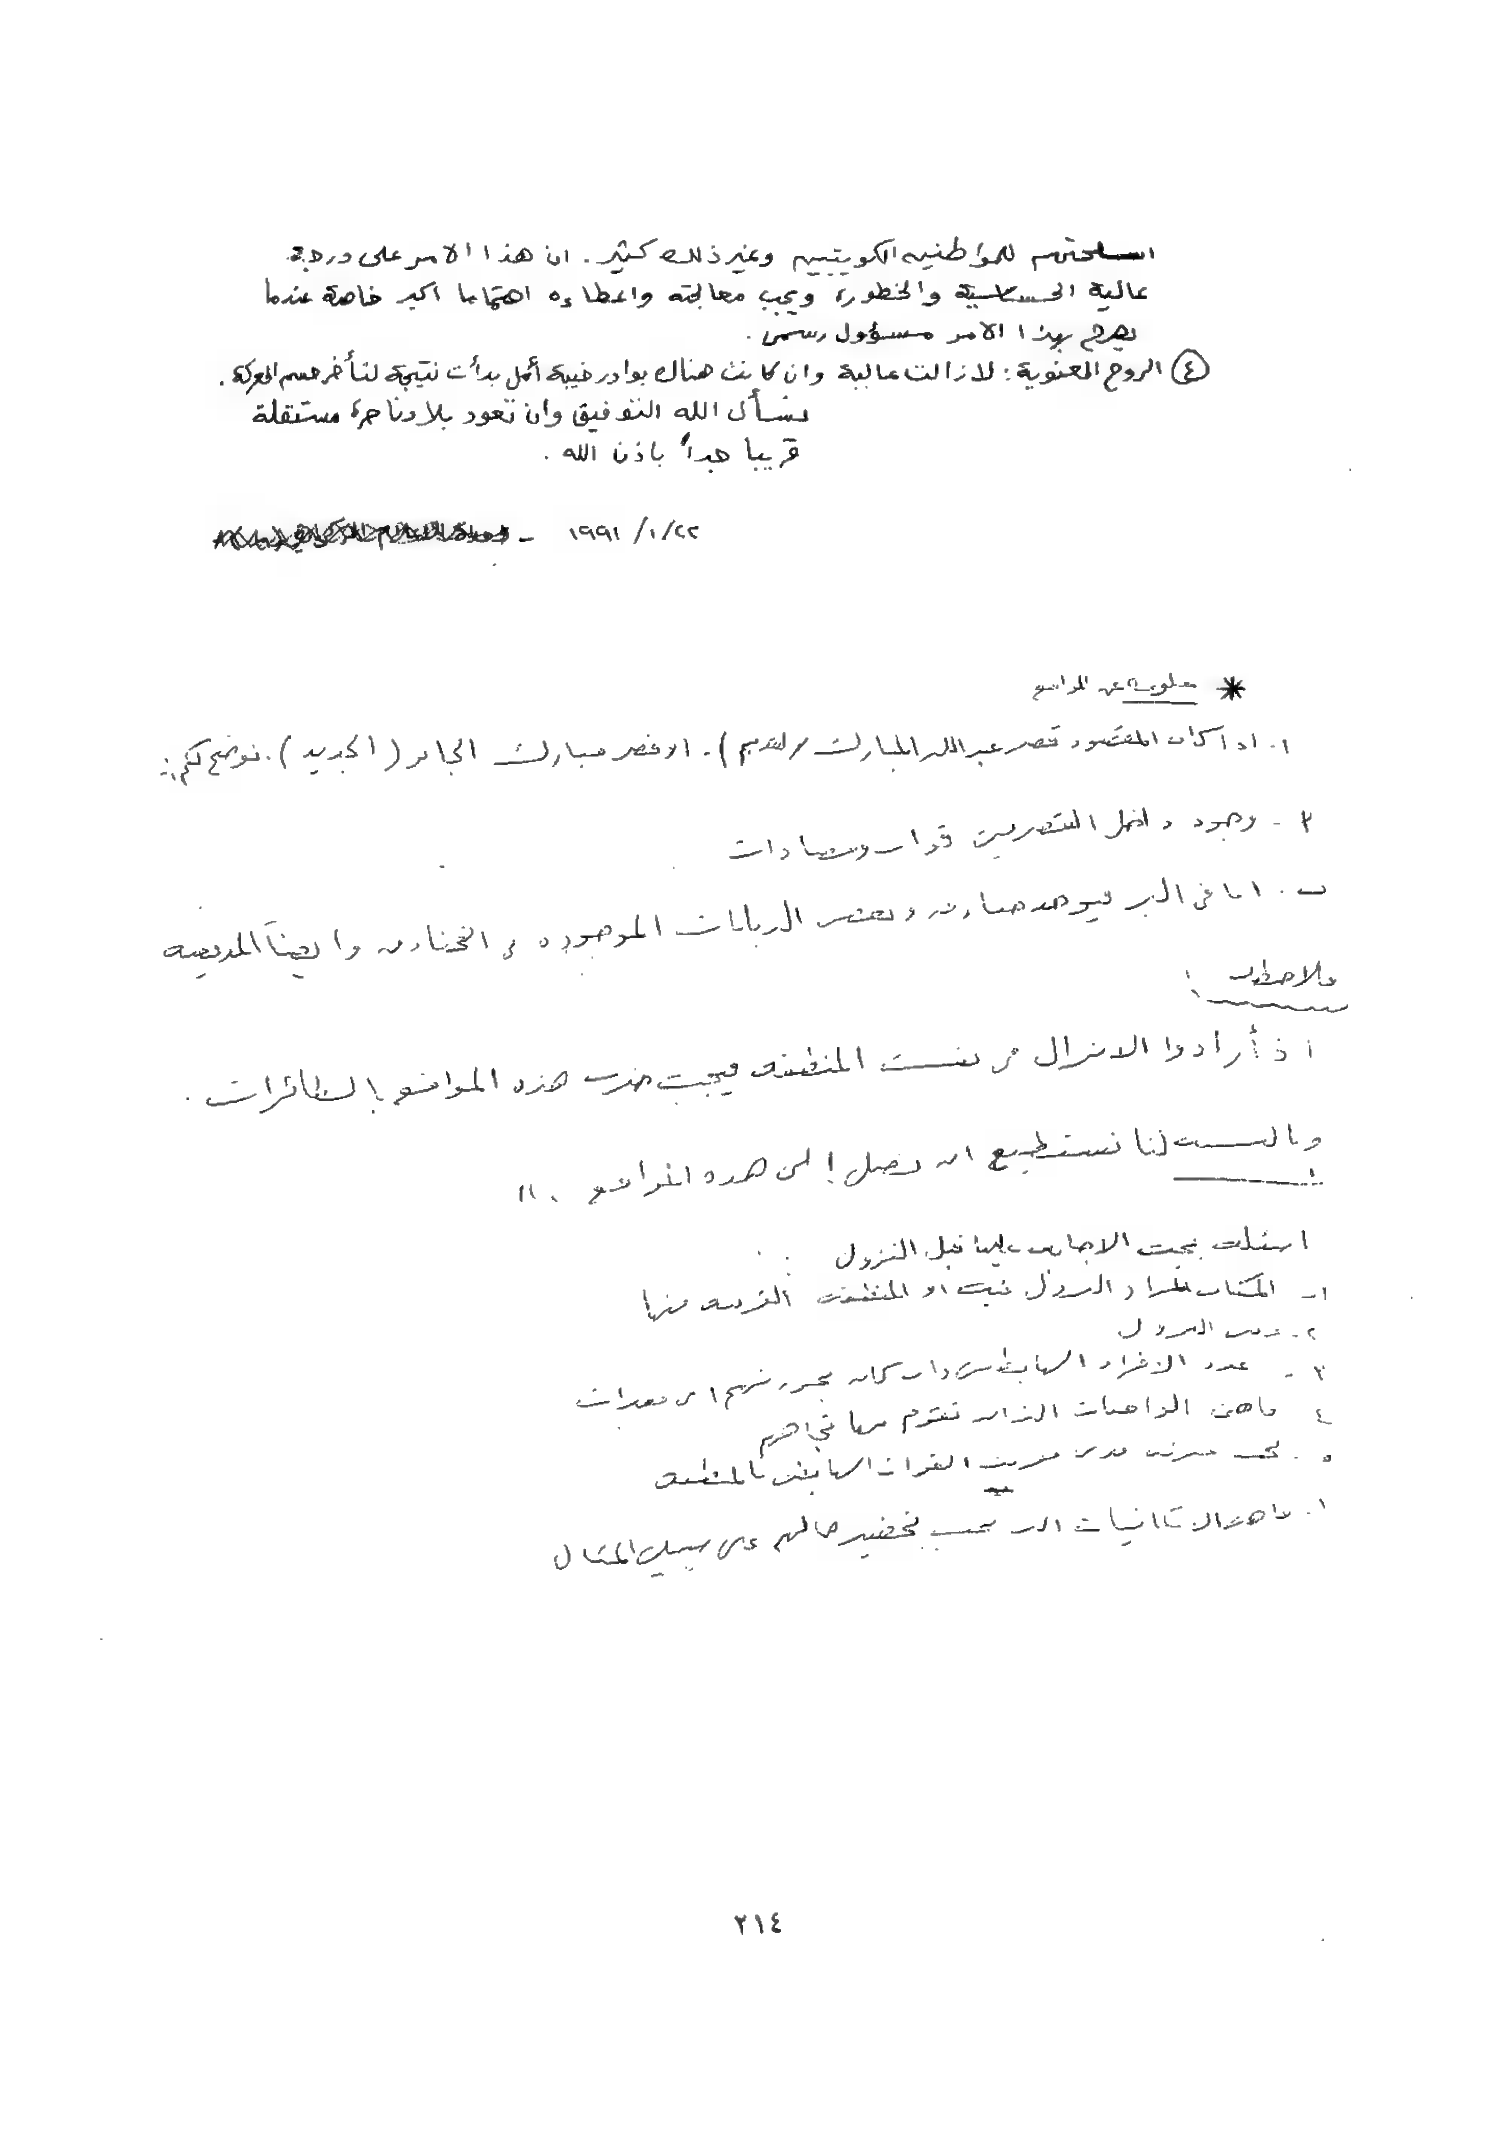 اسلحتهم للمواطنين الكويتيين وغير ذلك كثير. ان هذا الامر على درجة
عالية الحساسية والخطورة ويجب معالجته واعطاءه اهتماما اكبر خاصة عندما
يصرح بهذا الامر مسؤول رسمى.
٤ الروح المعنوية: لازالت عالية وان كانت هناك بوادر خيبة أمل بدأت نتيجة لتأخر حسم المعركة.
نسأل الله التوفيق وان تعود بلادنا حرة مستقلة
قريبا جداً باذن الله.
١٩٩١/١/٢٢ -
* معلومة عن المواقع
١. اذا كان المقصود قصر عبدالله المبارك (القديم). او قصر مبارك الجابر (الجديد). نوضح لكم:
٢ - وجود داخل القصرين قوات ومضادات
ب. اما في البر فيوجد خنادق وبعض الدبابات الموجودة في الخنادق وايضاً المدفعية
ملاحظة:
اذ أرادوا الانزال في نفس المنطقة فيجب ضرب هذه المواقع بالطائرات.
وبالنسبة لنا نستطيع ان نصل إلى هذه المواقع.
اسئلة يجب الاجابة عليها قبل النزول:
١- المكان المراد النزول فيه او المنطقة القريبة منها
٢- وقت النزول
٣- عدد الافراد الهابطين وان كان بحوزتهم اى معدات
٤ ماهى الواجبات التى نقوم بها تجاههم
٥. يجب معرفة مدى القوات الهابطة بالمنطقة
٦. ماهى الامكانيات التى يجب تحضيرها لهم على سبيل المثال
٢١٤